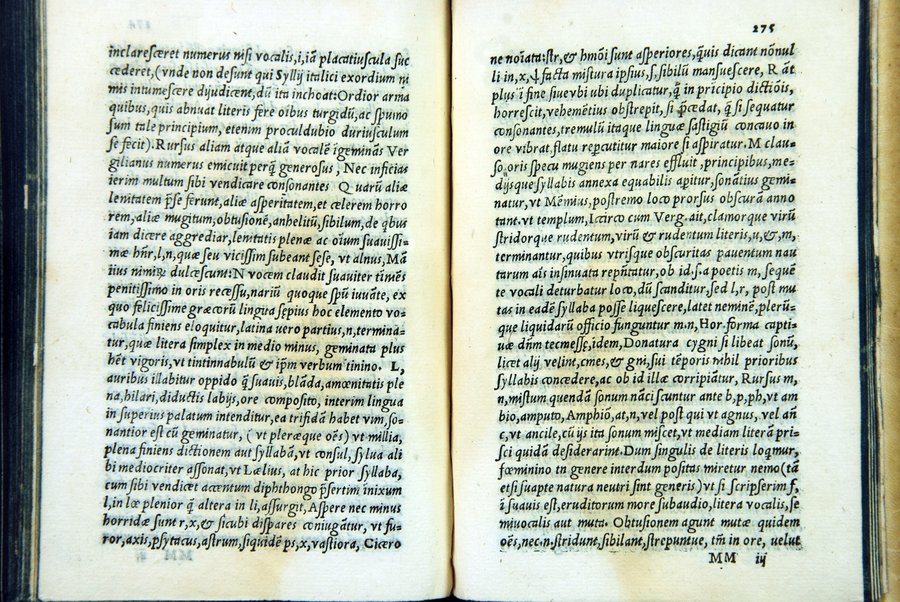 inclaresceret numerus nisi vocalis,i,iã placatiuscula suc
cæderet,(vnde non desunt qui Syllij italici exordium ni
mis intumescere dijudicent,dũ ita inchoat:Ordior arma
quibus,quis abnuat literis fere oībus turgidũ,ac spumo
sum tale principium,etenim proculdubio duriusculum
se fecit).Rursus aliam atque aliã vocalē īgeminãs Ver
gilianus numerus emicuit perq̃ generosus, Nec inficias
ierim multum sibi vendicare consonantes Quarũ aliæ
lenitatem p̄se ferunt,aliæ asperitatem,et celerem horro
rem,aliæ mugitum,obtusionē,anhelitũ,sibilum,de q̃bus
iam dicere aggrediar,lenitatis plenæ ac oīum suauissi-
mæ hñr,l,n,quæ seu vicissim subeant sese,vt alnus,Mã
lius nimirũ dulcescunt:N vocem claudit suauiter tīmēs
penitissimo in oris recessu,nariũ quoque spũ iuuãte, ex
quo felicissime græcorũ lingua sępius hoc elemento vo-
cabula finiens eloquitur,latina uero partius,n,termina-
tur,quæ litera simplex in medio minus, geminata plus
hēt vigoris,vt tintinnabulũ & ip̃m verbum tinino. L,
auribus illabitur oppido q̃ suauis,blãda,amœnitatis ple
na,hilari,diductis labijs,ore composito, interim lingua
in superius palatum intenditur,ea trifidã habet vim,so-
nantior est cũ geminatur, (vt pleræque oēs) vt millia,
plena finiens dictionem aut syllabã,vt consul,sylua ali
bi mediocriter assonat,vt Lælius, at hic prior syllaba,
cum sibi vendicet accentum diphthongo p̄sertim inixum
l,in lœ plenior q̃ altera in li,assurgit,Aspere nec minus
horridæ sunt r,x,& sicubi dispares coniugãtur, vt fu-
ror,axis,psytacus,astrum,siquidē ps,x,vastiora, Cicero
MM
275
ne noīata:str,& hmõi sunt asperiores,q̃uis dicant nõnul
li in,x,ψ facta mistura ipsius,s,sibilũ mansuescere, R ãt
plus ī fine siue vbi ubi duplicatur, q̃ in pricipio dictiõis,
horrescit,vehemētius obstrepit, si p̄cedat, q̃ si sequatur
consonantes,tremulũ itaque linguæ fastigiũ concauo in
ore vibrat,flatu repcutitur maiore si aspiratur. M clau-
so,oris specu mugiens per nares effluit,principibus,me-
dijsque syllabis annexa equabilis apitur,sonãtius gemi-
natur, vt Mēmius,postremo loco prorsus obscurã anno
tant. vt templum, Iccirco cum Verg.ait,clamorque virũ
stridorque rudentum,virũ & rudentum literis,u,&,m,
terminantur, quibus vtrisque obscuritas pauentum nau
tarum als insinuata rep̃ntatur, ob id.s.a poetis m, sequē
te vocali deturbatur loco,dũ scanditur,sed l,r, post mu
tas in eadē syllaba posse liquescere,latet neminē,plerũ-
que liquidarũ officio funguntur m.n,Hor.forma capti-
uæ dñm tecmessæ,idem,Donatura cygni si libeat sonũ,
licet alij velint,cmes,& gni,sui tēporis nihil prioribus
syllabis concedere,ac ob id illæ corripiãtur, Rursus m,
n,mistum quendã sonum nãciscuntur ante b,p,ph,vt am
bio,amputo, Amphiõ,at,n,vel post qui vt agnus, vel añ
c,vt ancile,cũ ijs ita sonum miscet,vt mediam literã pri-
sci quidã desiderarint.Dum singulis de literis loq̃mur,
fœminino in genere interdum positas miretur nemo (tã
etsi suapte natura neutri sint generis) vt si scripserim f,
ī suauis est,eruditorum more subaudio,litera vocalis,se
miuocalis aut muta. Obtusionem agunt mutæ quidem
oēs,nec.n.stridunt,sibilant,strepuntue, tm̃ in ore, uelut
MM iij